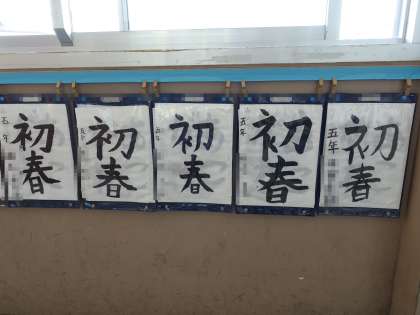 初春
五年
初春
五年
初春
五年
初春
五年
初春
五年